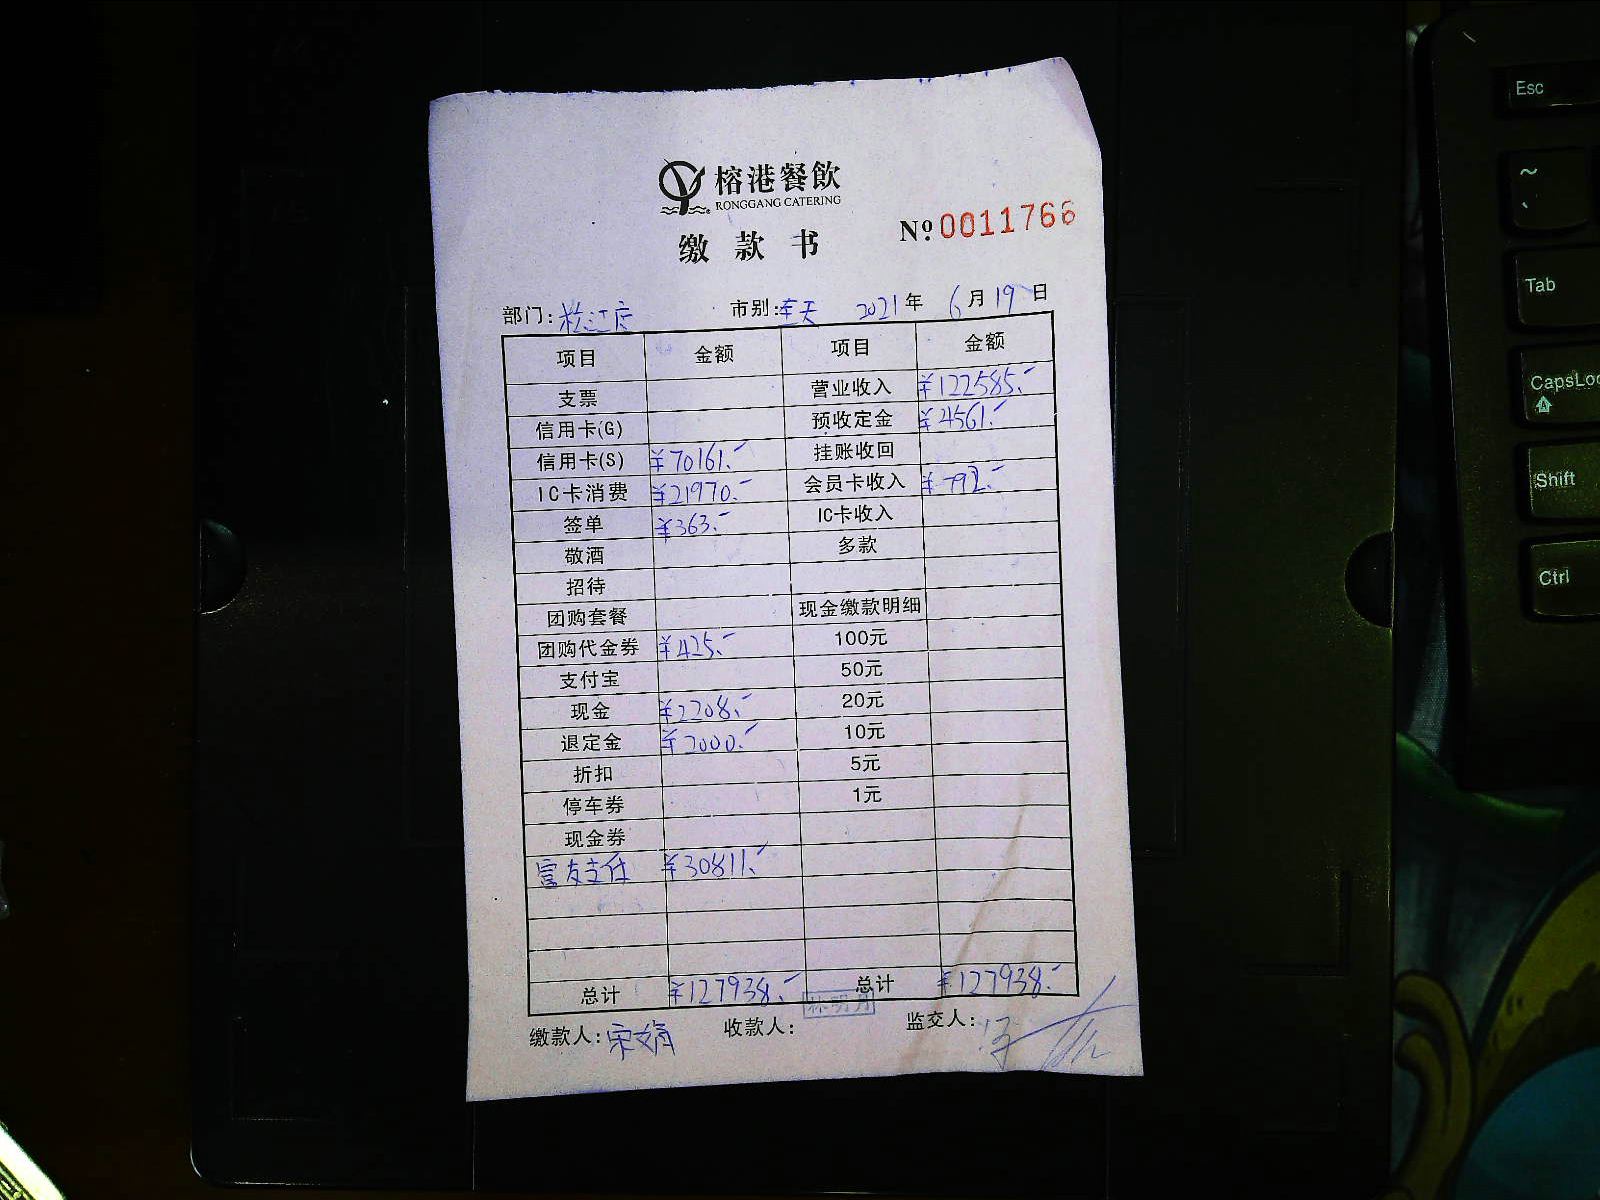 榕港餐飲
RONGGANG CATERING
缴款书
Nº.0011766
部门:松江店 市别:全天 2021年 6月19日
项目 金额 项目 金额
支票 营业收入 ¥122585.-
信用卡(G) 预收定金 ¥4561.-
信用卡(S) ¥70161.- 挂账收回
IC卡消费 ¥21970.- 会员卡收入 ¥792.-
签单 ¥363.- IC卡收入
敬酒 多款
招待
团购套餐 现金缴款明细
团购代金券 ¥425.- 100元
支付宝 50元
现金 ¥2208.- 20元
退定金 ¥2000.- 10元
折扣 5元
停车券 1元
现金券
富友支付 ¥30811.-
总计 ¥127938.- 总计 ¥127938.-
缴款人:宋娟 收款人: 林明月 监交人:
Esc
~
Tab
CapsLoc
Shift
Ctrl